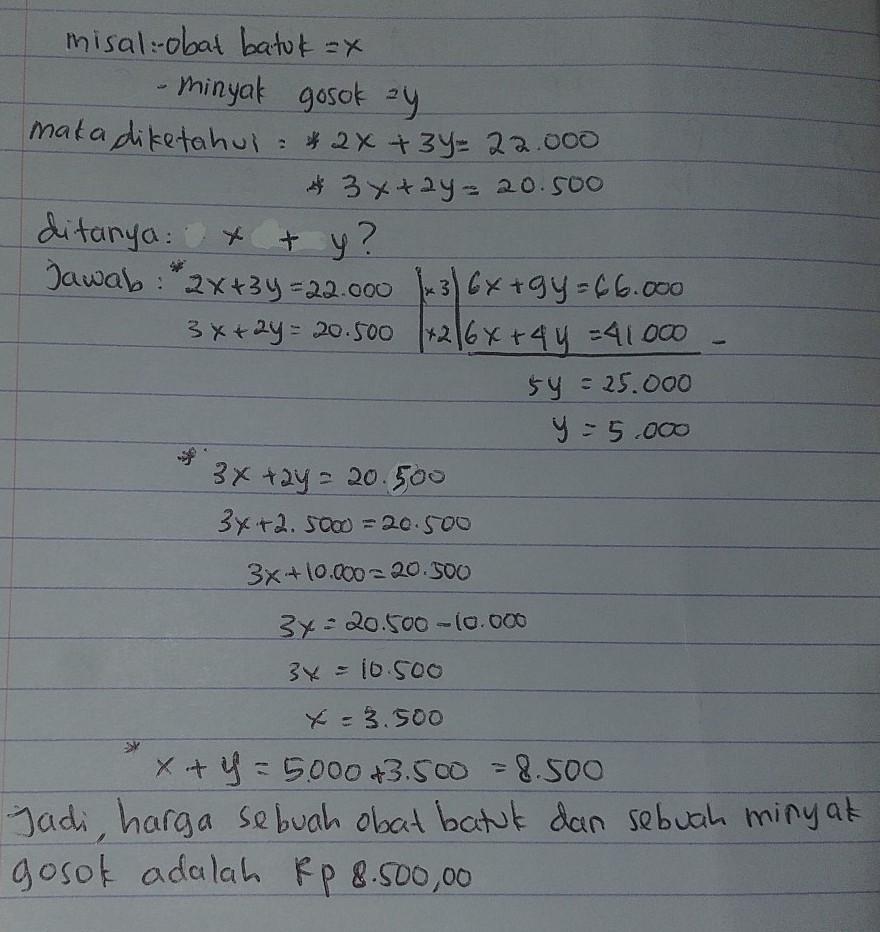 misal:-obat batuk = x
- minyak gosok = y
maka diketahui : * 2x + 3y = 22.000
* 3x + 2y = 20.500
ditanya: x + y?
Jawab : * 2x + 3y = 22.000 |x3| 6x + 9y = 66.000
3x + 2y = 20.500 |x2| 6x + 4y = 41.000 -
5y = 25.000
y = 5.000
* 3x + 2y = 20.500
3x + 2. 5000 = 20.500
3x + 10.000 = 20.500
3x = 20.500 - 10.000
3x = 10.500
x = 3.500
* x + y = 5000 + 3.500 = 8.500
Jadi, harga sebuah obat batuk dan sebuah minyak
gosok adalah Rp 8.500,00